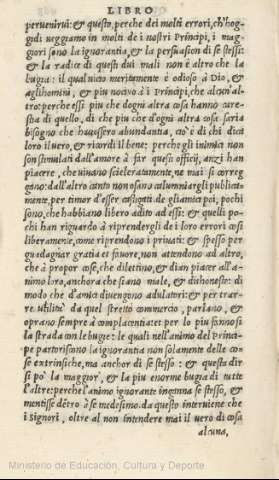 LIBRO
peruenirui: & questo, perche dei molti errori, ch'hog-
gidi ueggiamo in molti de i nostri Principi, i mag-
giori sono la ignorantia, & la persuasion di se stessi:
& la radice di questi dui mali non è altro che la
bugia: il qual uitio meritamente è odioso à Dio, &
a gli homini, & piu nociuo à i Principi, che alcun'al-
tro: perche essi piu che d'ogni altra cosa hanno care-
stia di quello, di che piu che d'ogni altra cosa saria
bisogno che hauessero abundantia, cio è di chi dica
loro il uero, & ricordi il bene: perche gli inimici non
son stimulati dall'amore à far questi officij, anzi han
piacere, che uiuano sceleratamente, ne mai si correg-
gano: dall'altro canto non osano calumniargli publica-
mente, per timor d'esser castigati. de gli amici poi, pochi
sono, che habbiano libero adito ad essi: & quelli po-
chi han riguardo à riprendergli de i loro errori cosi
liberamente, come riprendono i priuati: & spesso per
guadagnar gratia et fauore, non attendono ad altro,
che à propor cose, che dilettino, & dian piacer all'a-
nimo loro, anchora che siano male, & dishoneste: di
modo che d'amici diuengono adulatori: & per trar-
re utilità da quel stretto commercio, parlano, &
oprano sempre à complacentia: et per lo piu fannosi
la strada con le bugie: le quali nell'animo del Princi-
pe partoriscono la ignorantia non solamente delle co-
se extrinsiche, ma anchor di se stesso: & questa dir
si po la maggior', & la piu enorme bugia di tutte
l'altre: perche l'animo ignorante inganna se stesso, &
mentisse dētro à se medesimo. da questo interuiene che
i Signori, oltre al non intendere mai il uero di cosa
alcuna,
Ministerio de Educación, Cultura y Deporte